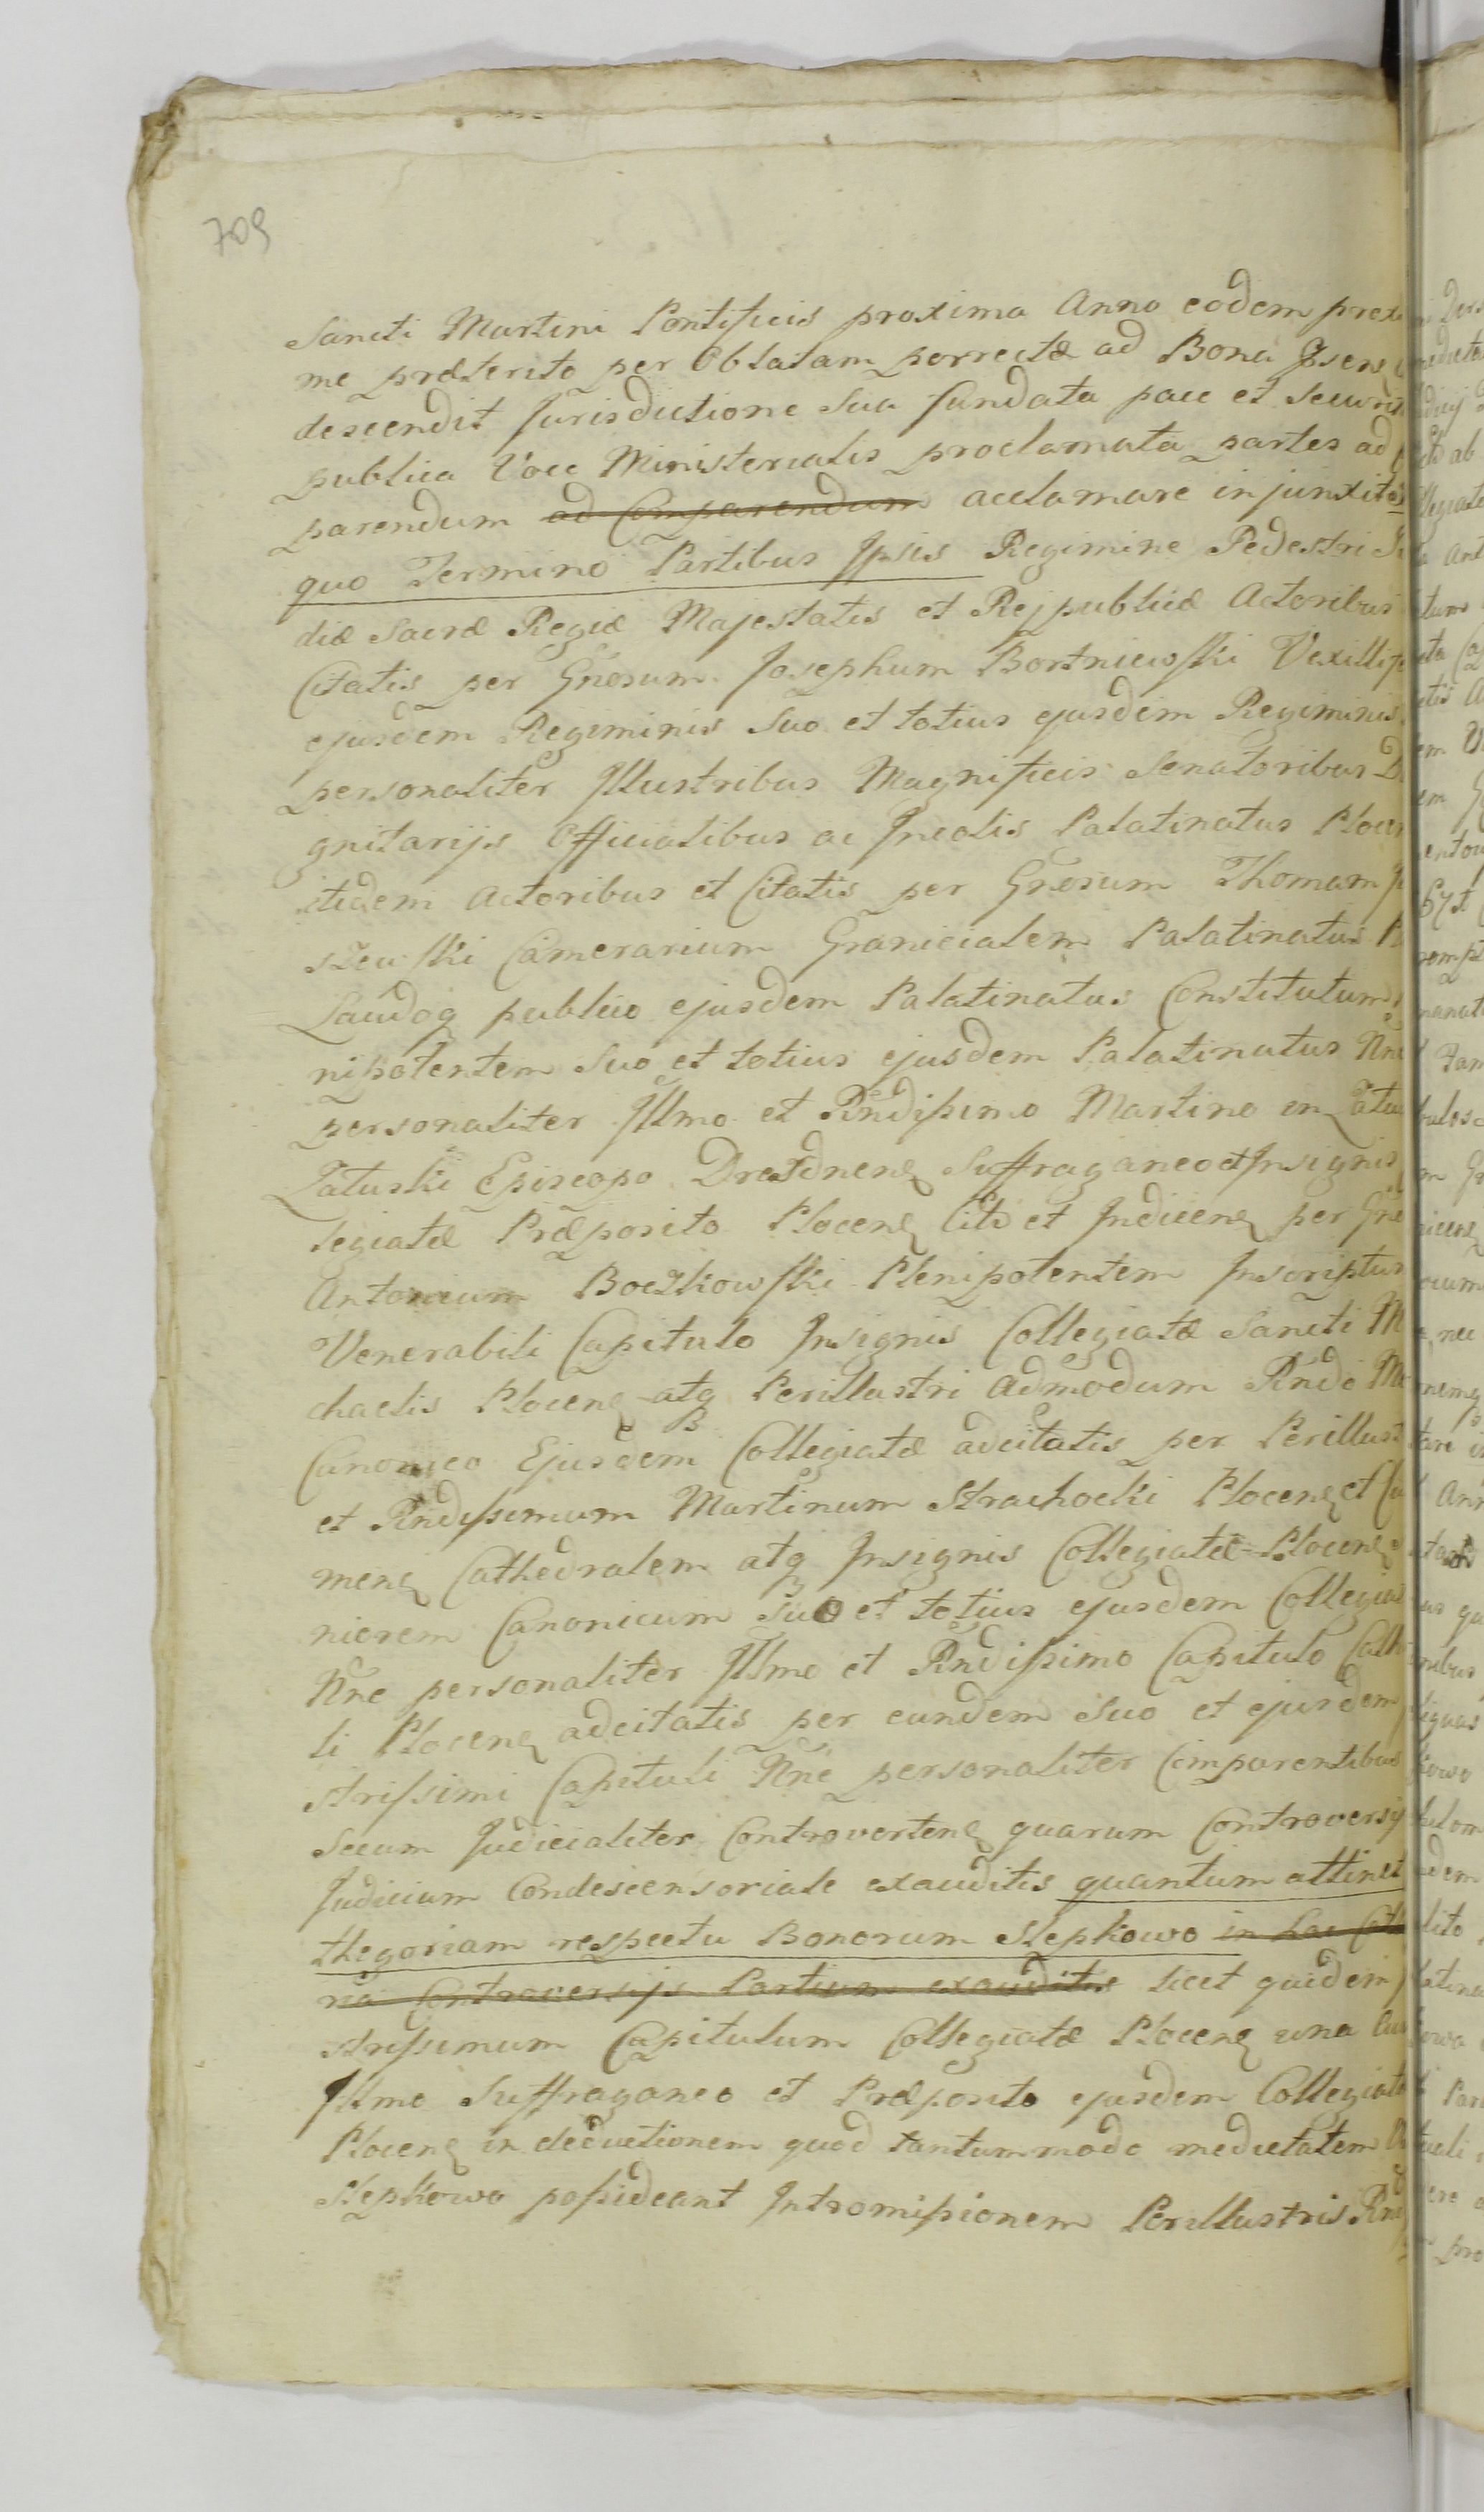 709
Sancti Martini Pontificis proxima Anno eodem proxi
me præterito per Oblatam porrectæ ad Bona Jsenę
descendit Jurisdictione Sua fundata pace et Securit
publica Voce Ministerialis proclamata partes ad
parendum ad Comparendum acclamare injunxit
quo Termino Partibus Ipsis Regimine Pedestri
diæ Sacræ Regiæ Majestatis et Rejpublicæ Actoribus
Citatis per Gnosum Josephum Bortniewski Vexillif
ejusdem Regiminis Suo et totius ejusdem Regiminis
personaliter Illustribus Magnificis Senatoribus Di
gnitarijs Officialibus ac Incolis Palatinatus Ploce
itidem Actoribus et Citatis per Gnosum Thomam
szewski Camerarium Granicialem Palatinatus
Laudoq publico ejusdem Palatinatus Constitutum
nipotentem Suo et totius ejusdem Palatinatus Nne
personaliter Illmo et Rndissimo Martino in Załus
Załuski Episcopo Drasdnenę Suffraganeo et Insignis
legiatæ Præposito Plocenę Cito et Indicenę per Gno
Antonium Boczkowski Plenipotentem Inscriptum
Venerabili Capitulo Insignis Collegiatæ Sancti Mi
chaelis Plocenę atq Perillustri Admodum Rndo
Canonico Ejusdem Collegiatæ adcitatis per Perillust
et Rndissimum Martinum Strachocki Plocenę et Ca
menę Cathedralem atq Insignis Collegiatæ Plocenę
niorem Canonicum Suo et totius ejusdem Collegiat
Nne personaliter Illmo et Rndissimo Capitulo Cath
li Plocenę adcitatis per eundem Suo et ejusdem
strissimi Capituli Nne personaliter Comparentibus
Secum Judicialiter Controvertenę quarum Controversijs
Judicium Condescensoriale exauditis quantum attinet
thegoriam respectu Bonorum Slepkowo in hac Cath
ria Controversijs Partium exauditis licet quidem
strissimum Capitulum Collegiatæ Plocenę una cum
Illmo Suffraganeo et Præposito ejusdem Collegiatæ
Plocenę in deductionem quod tantummodo medietatem
Slepkowo possideant Intromissionem Perillustris Rnd